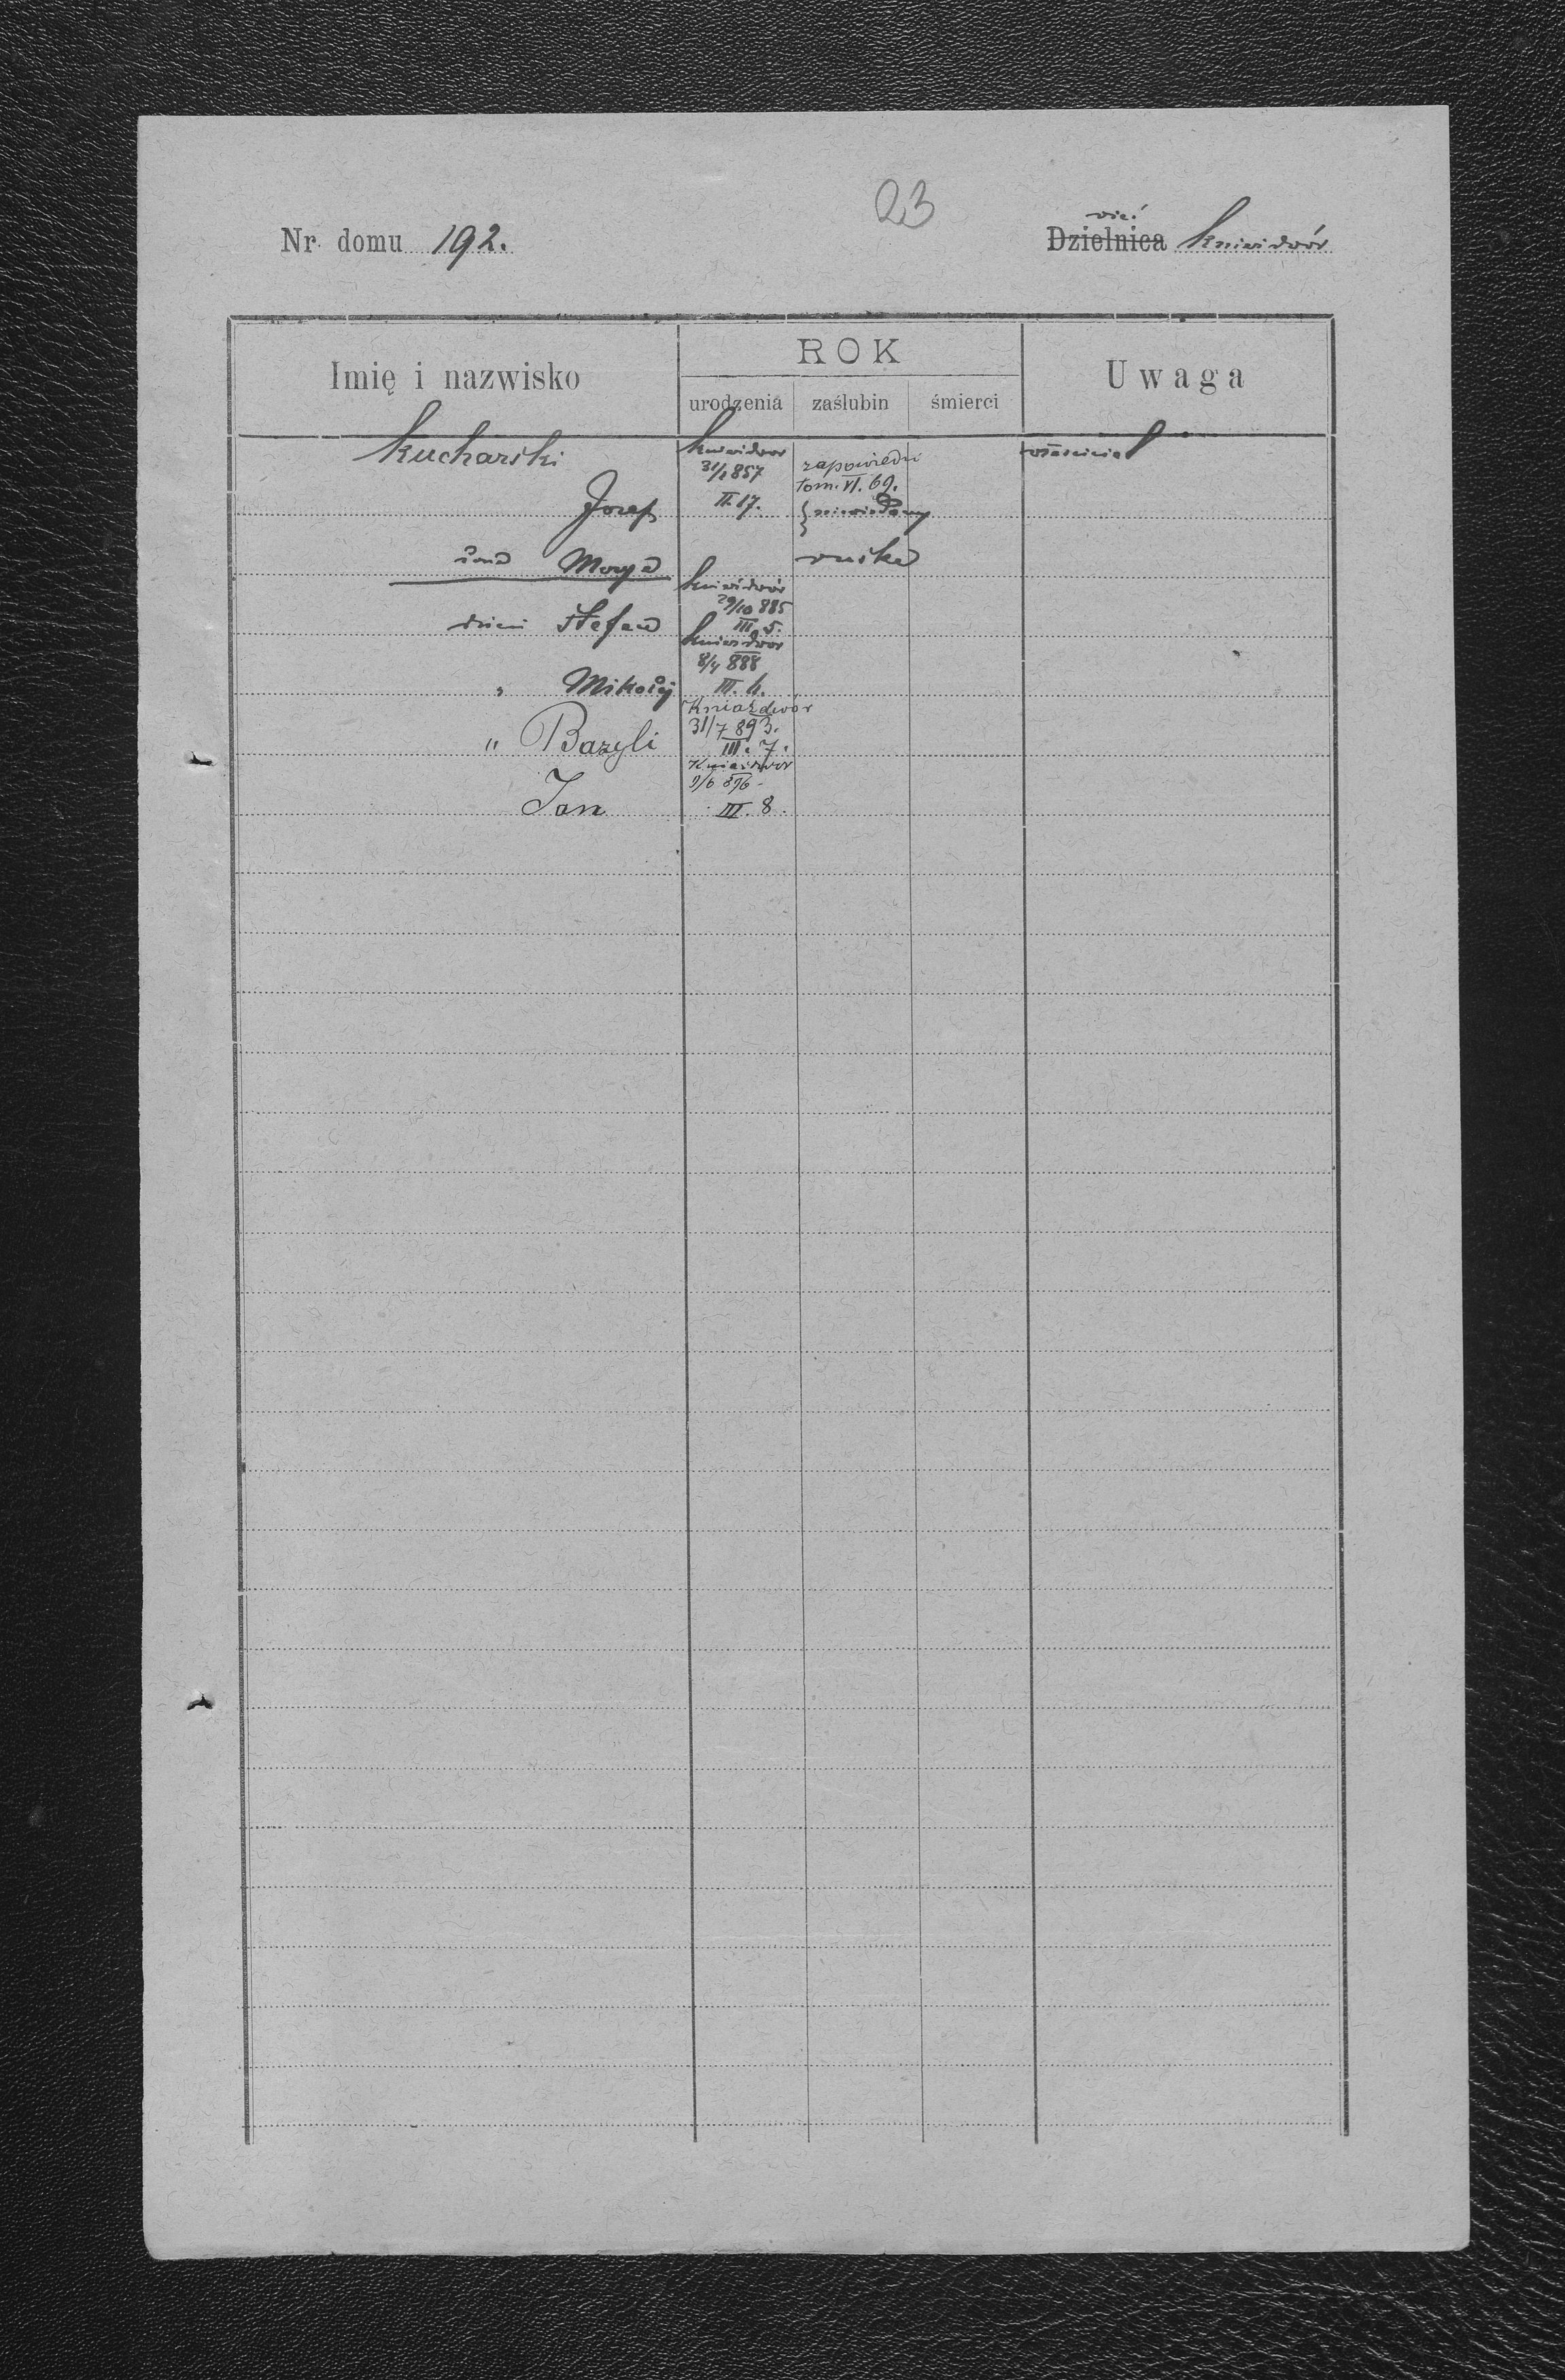 23
Nr. domu 192.
wieś
Dzielnica Kniaźdwór
Imię i nazwisko
ROK
urodzenia zaślubin śmierci
Uwaga
Kucharski
Kniaźdwor
31/1 857
II. 17.
zapowiedzi
tom. VI. 69.
właściciel
Józef
niewiadomy
żona Marya
ruska
dzieci Stefan
Kniaźdwór
29/10 885
III. 5.
" Mikołaj
Kniaźdwor
8/4 888
III. 6.
" Bazyli
Kniaźdwór
31/7 893.
III. 7.
Jan
Kniaźdwor
9/6 896
III. 8.